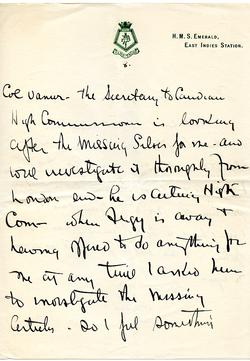 H.M.S. EMERALD,
EAST INDIES STATION.
Col Vanier - the Secretary to Canadian
High Commissioner is looking
after the Missing Silver for me - and
will investigate it thoroughly from
London end - he is acting High
Com - when Fergy is away &
having offered to do anything for
me at any time I asked him
to investigate the missing
articles - so I feel something